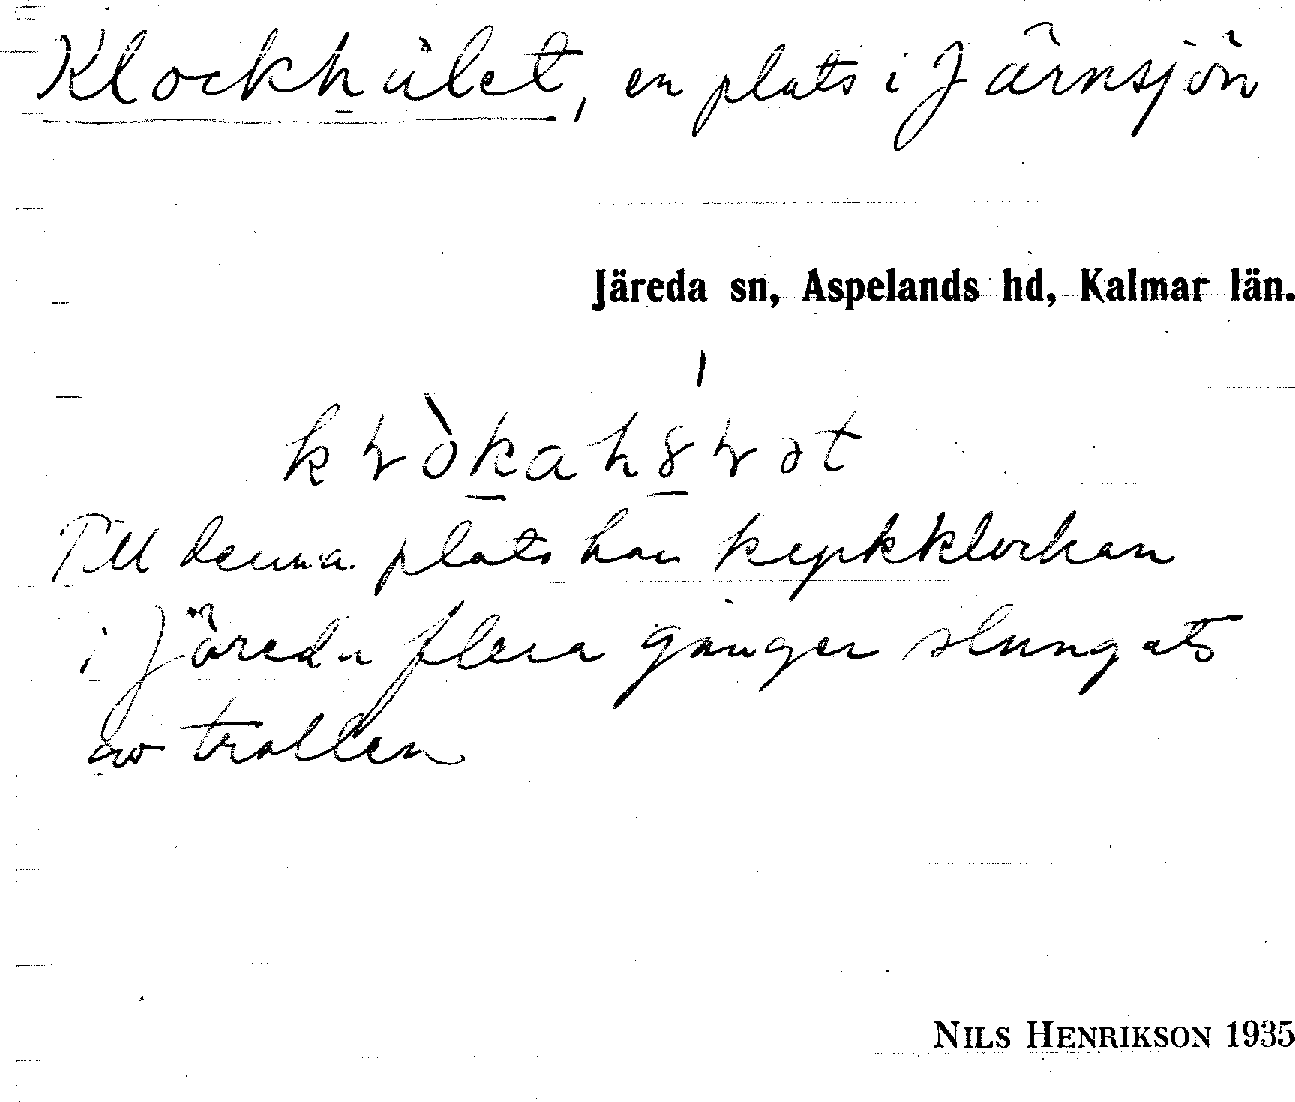 Klockhålet, en plats i Järnsjön
Järeda sn, Aspelands hd, Kalmar län.
Till denna plats har kyrkklockan
i Järeda flera gånger slungats
av trollen
NILS HENRIKSON 1935